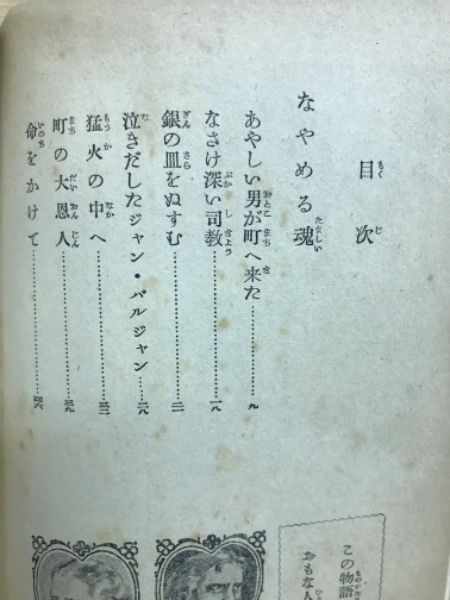 目次
なやめる魂
あやしい男が町へ来た……………九
なさけ深い司教……………一八
銀の皿をぬすむ……………二一
泣きだしたジャン・バルジャン……二八
猛火の中へ……………三三
町の大恩人……………三九
命をかけて……………四六
この物語
おもな人